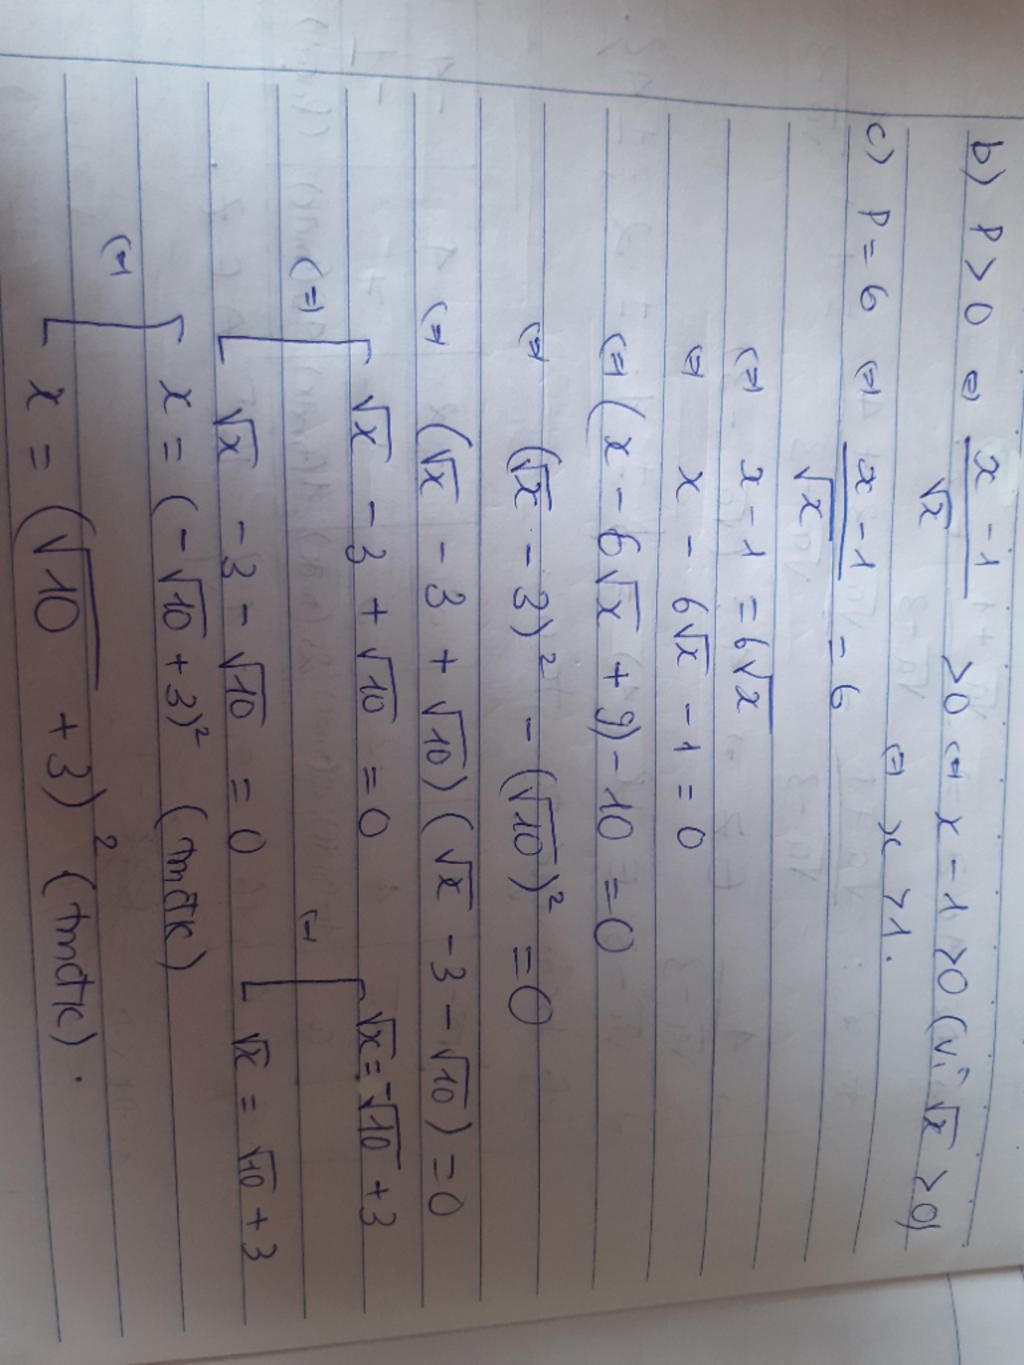 b) P > 0 (=) x - 1 / √x > 0 (=) x - 1 > 0 (vì √x > 0)
(=) x > 1.
c) P = 6 (=) x - 1 / √x = 6
(=) x - 1 = 6√x
(=) x - 6√x - 1 = 0
(=) (x - 6√x + 9) - 10 = 0
(=) (√x - 3)² - (√10)² = 0
(=) (√x - 3 + √10) (√x - 3 - √10) = 0
(=) [ √x - 3 + √10 = 0 (=) [ √x = -√10 + 3
√x - 3 - √10 = 0 √x = √10 + 3
(=) [ x = (-√10 + 3)² (tmđk)
x = (√10 + 3)² (tmđk).